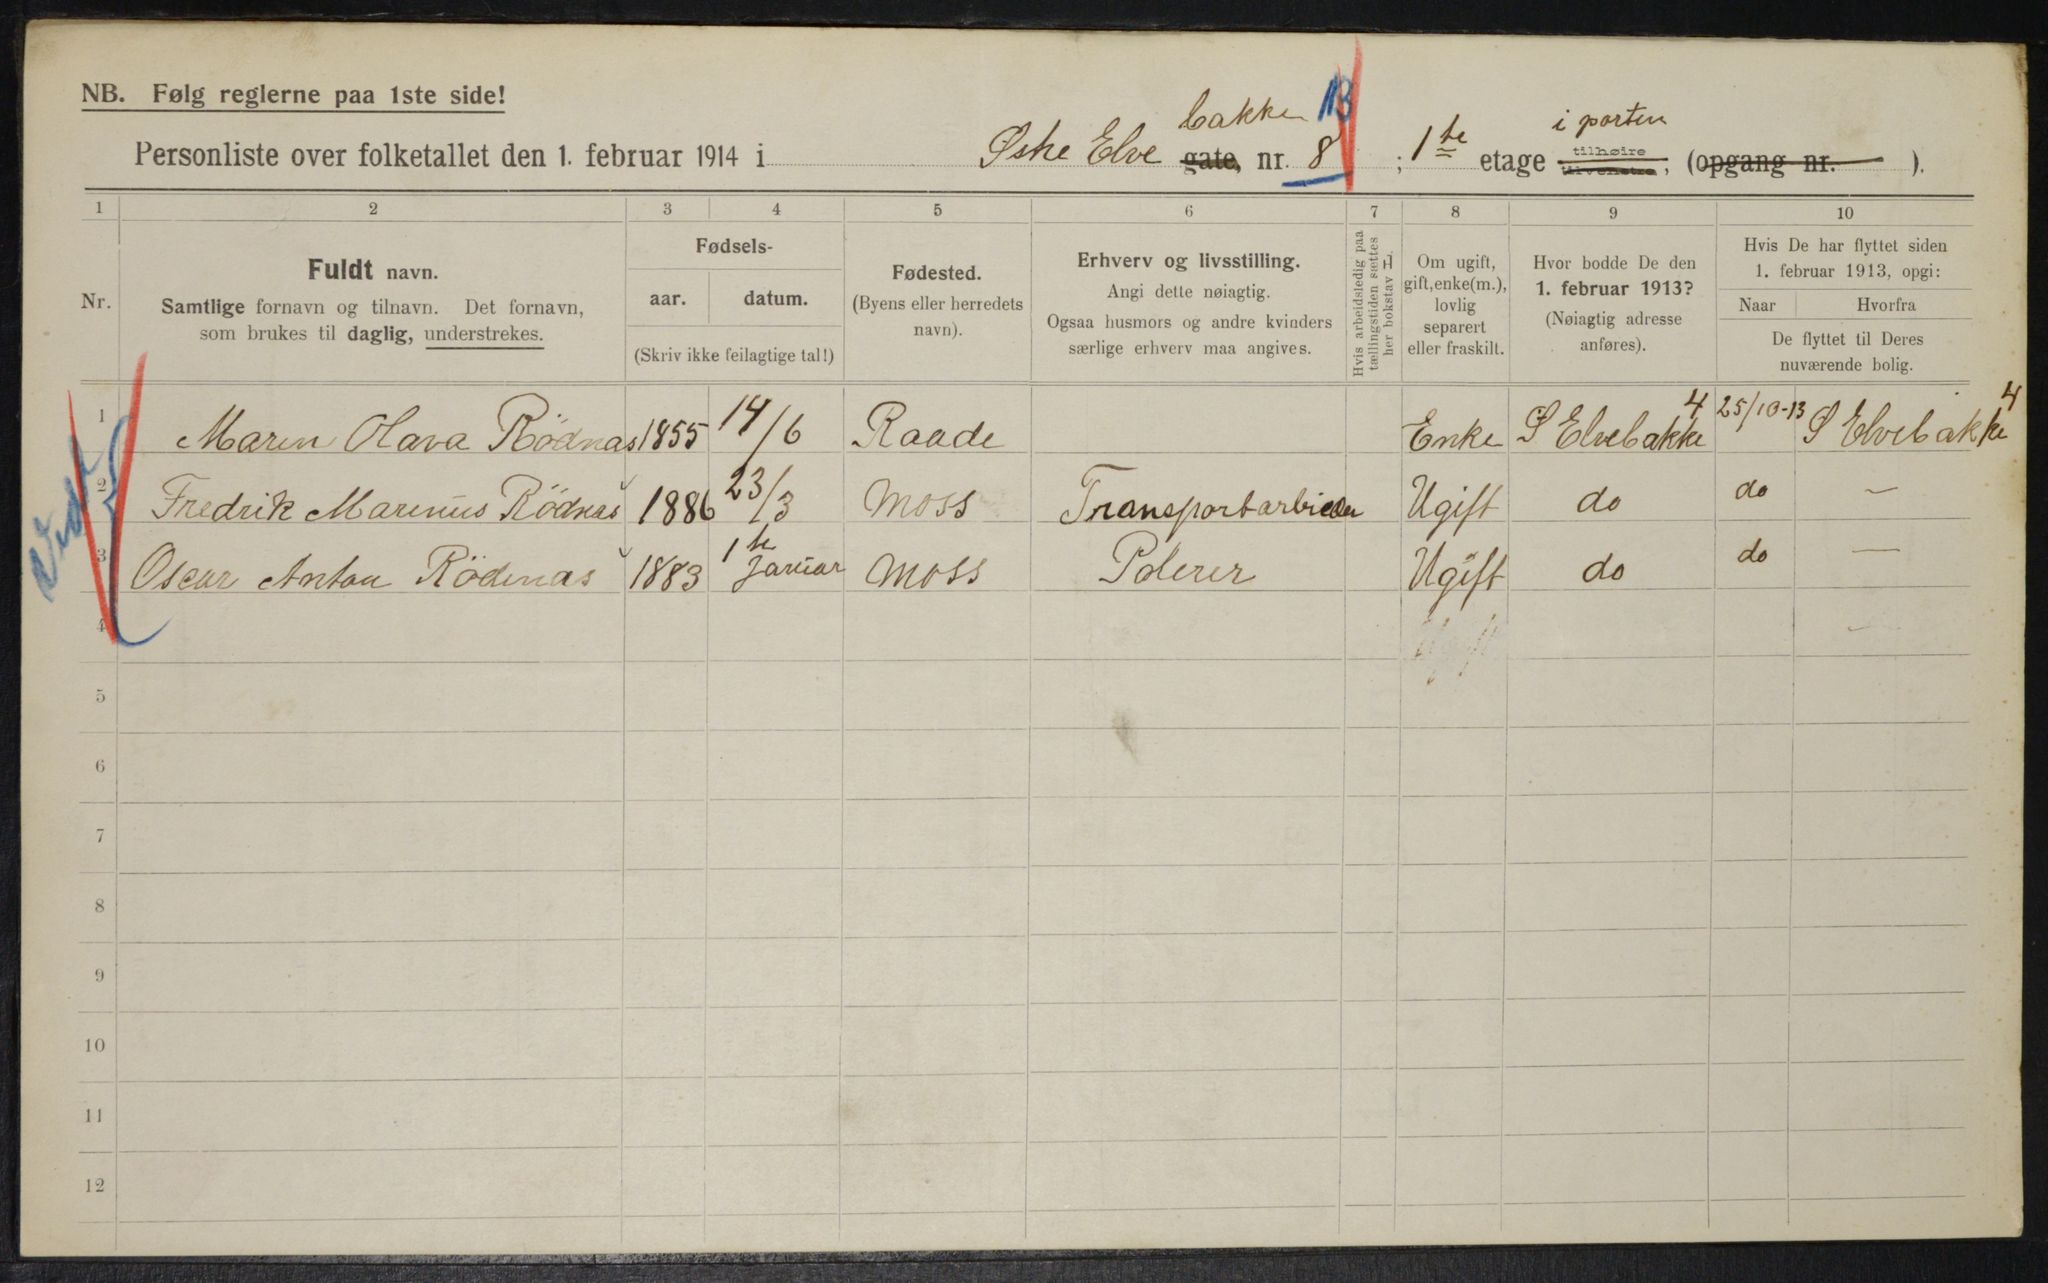 NB. Følg reglerne paa 1ste side!
bakke 13 i porten
Personliste over folketallet den 1. februar 1914 i Østre Elve gate, nr. 8 ; 1te etage tilhøire tilvenstre, (opgang nr. ).
1 2 3 4 5 6 7 8 9 10
Nr.
Fuldt navn.
Samtlige fornavn og tilnavn. Det fornavn,
som brukes til daglig, understrekes.
Fødsels-
aar. datum.
(Skriv ikke feilagtige tal!)
Fødested.
(Byens eller herredets
navn).
Erhverv og livsstilling.
Angi dette nøiagtig.
Ogsaa husmors og andre kvinders
særlige erhverv maa angives.
Hvis arbeidsledig paa
tællingstiden sættes
her bokstav L
Om ugift,
gift, enke(m.),
lovlig
separert
eller fraskilt.
Hvor bodde De den
1. februar 1913?
(Nøiagtig adresse
anføres).
Hvis De har flyttet siden
1. februar 1913, opgi:
Naar Hvorfra
De flyttet til Deres
nuværende bolig.
1 Maren Olava Rödnas 1855 14/6 Raade Enke S Elvebakke 4 25/10-13 S Elvebakke 4
2 Fredrik Marinus Rödnas 1886 23/3 Moss Transportarbieder Ugift do do —
3 Oscar Anton Rödnas 1883 1te Januar Moss Polerer Ugift do do —
4 —
5
6
7
8
9
10
11
12